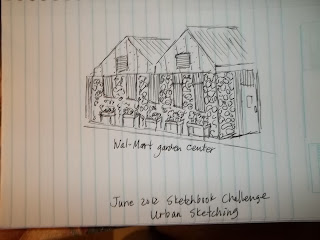 Wal-Mart garden center
June 2012 Sketchbook Challenge
Urban Sketching